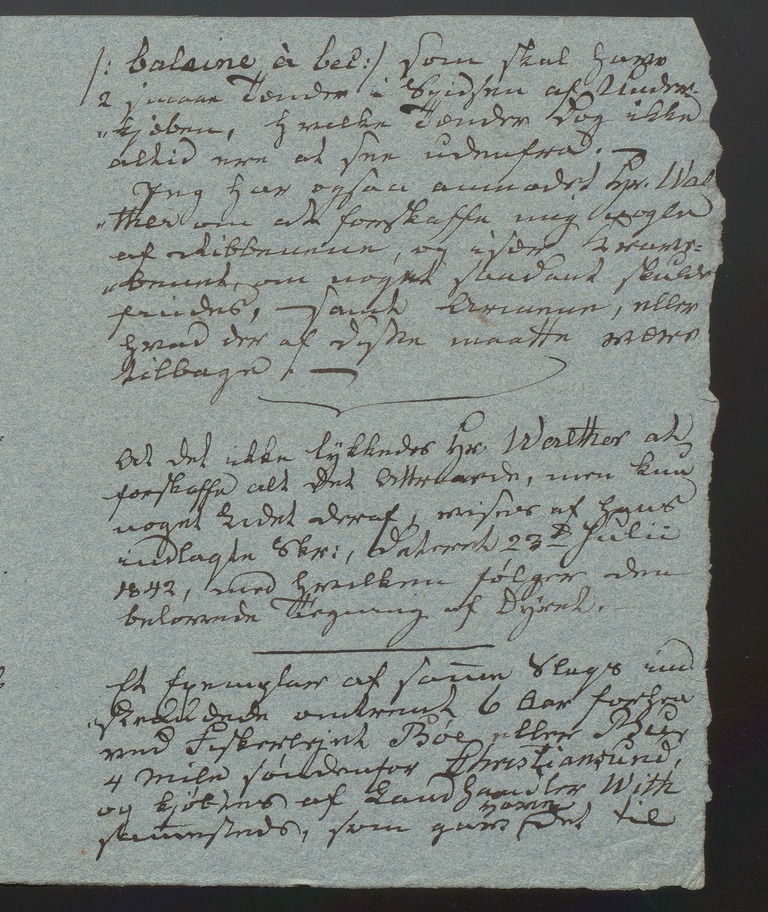 /: baleine à bec :/ som skal have
2 smaae Tænder i Spidsen af Under-
"kjæben, hvilke Tænder dog ikke
altid ere at see udenfra. —
Jeg har ogsaa anmodet Hr. Wal-
"ther om at forskaffe mig nogle
af Ribbenene, og især
"benet, om noget saadant skulde
findes, — samt Armene, eller
hvad der af disse maatte være
tilbage. —
At det ikke lykkedes Hr. Walther at
forskaffe alt det Attraaede, men kun
noget Lidet deraf, vises af hans
indlagte Skr:, dateret 23de Julii
1842, med hvilken følger den
belovede Tegning af Dyret.
Et Exemplar af samme Slags ind
"strandede omtrent 6 Aar forhen
ved Fiskerlejet Bøe eller
4 Mile søndenfor Christiansund,
og kjøbtes af Landhandler With
sammesteds, som gav det til